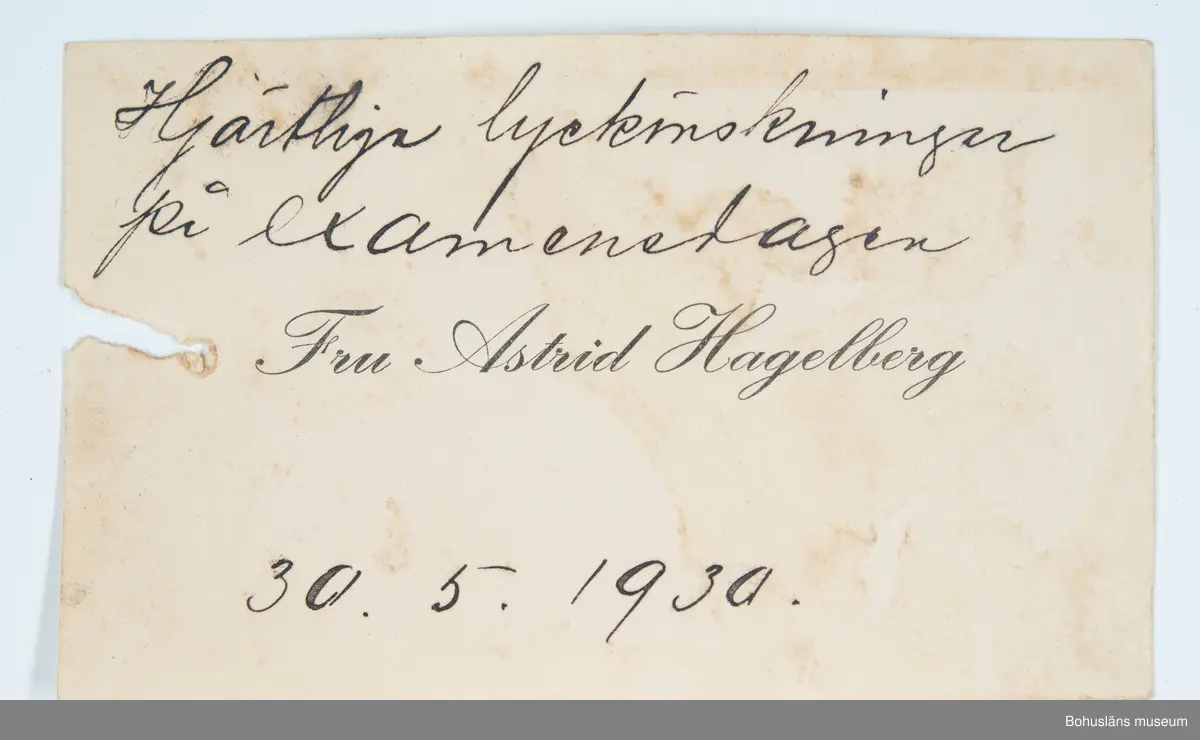 Hjärtliga lyckönskningar
på examensdagen
Fru Astrid Hagelberg
30. 5. 1930.
Bohusläns museum